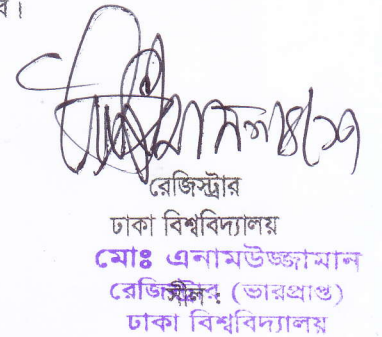 ব।
রেজিস্ট্রার
ঢাকা বিশ্ববিদ্যালয়
মোঃ এনামউজ্জামান
রেজিস্ট্রার (ভারপ্রাপ্ত)
সীল :
ঢাকা বিশ্ববিদ্যালয়